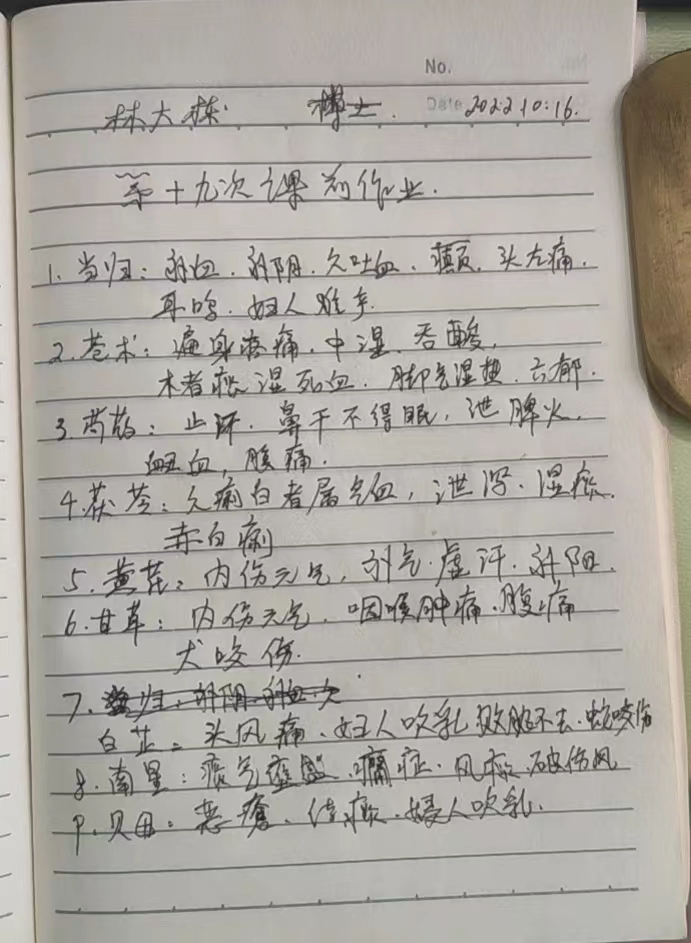 No.
林大栋 Date 2022 10:16.
第十九次课前作业.
1. 当归: 补血. 补阴. 久吐血. 癫. 头左痛.
耳鸣. 妇人难产
2. 苍术: 遍身疼痛. 中湿. 吞酸.
木者 湿死血. 脚气湿热. 六郁.
3. 芍药: 止汗. 鼻干不得眠. 泄脾火.
衄血, 腹痛.
4. 茯苓: 久痢白者属气血, 泄泻. 湿痰.
赤白痢
5. 黄芪: 内伤元气, 补气. 虚汗. 补阳.
6. 甘草: 内伤元气. 咽喉肿痛. 腹痛
犬咬伤.
7. 当归. 补阴. 补血.
白芷: 头风痛. 妇人吹乳 败脓不去. 蛇咬伤
8. 南星: 痰气壅盛. 痫症. 风痰. 破伤风
9. 贝母: 恶疮. 痰. 妇人吹乳.